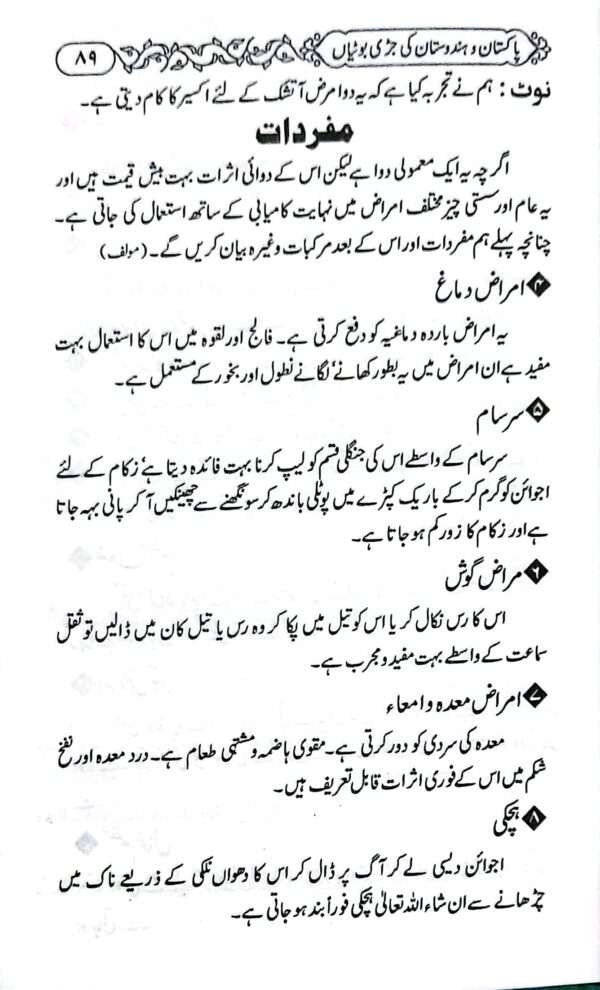 پاکستان و ہندوستان کی جڑی بوٹیاں
۸۹
نوٹ: ہم نے تجربہ کیا ہے کہ یہ دوا مرض آتشک کے لئے اکسیر کا کام دیتی ہے۔
مفردات
اگرچہ یہ ایک معمولی دوا ہے لیکن اس کے دوائی اثرات بہت بیش قیمت ہیں اور
یہ عام اور سستی چیز مختلف امراض میں نہایت کامیابی کے ساتھ استعمال کی جاتی ہے۔
چنانچہ پہلے ہم مفردات اور اس کے بعد مرکبات وغیرہ بیان کریں گے۔ (مولف)
۴ امراض دماغ
یہ امراض باردہ دماغیہ کو دفع کرتی ہے۔ فالج اور لقوہ میں اس کا استعمال بہت
مفید ہے ان امراض میں یہ بطور کھانے' لگانے نطول اور بخور کے مستعمل ہے۔
۵ سرسام
سرسام کے واسطے اس کی جنگلی قسم کو لیپ کرنا بہت فائدہ دیتا ہے' زکام کے لئے
اجوائن کو گرم کر کے باریک کپڑے میں پوٹلی باندھ کر سونگھنے سے چھینکیں آ کر پانی بہہ جاتا
ہے اور زکام کا زور کم ہو جاتا ہے۔
۶ مراض گوش
اس کا رس نکال کر یا اس کو تیل میں پکا کر وہ رس یا تیل کان میں ڈالیں تو ثقل
سماعت کے واسطے بہت مفید و مجرب ہے۔
۷ امراض معدہ و امعاء
معدہ کی سردی کو دور کرتی ہے۔ مقوی ہاضمہ و مشتہی طعام ہے۔ درد معدہ اور نفخ
شکم میں اس کے فوری اثرات قابل تعریف ہیں۔
۸ ہچکی
اجوائن دیسی لے کر آگ پر ڈال کر اس کا دھواں نلکی کے ذریعے ناک میں
چڑھانے سے ان شاء اللہ تعالیٰ ہچکی فوراً بند ہو جاتی ہے۔